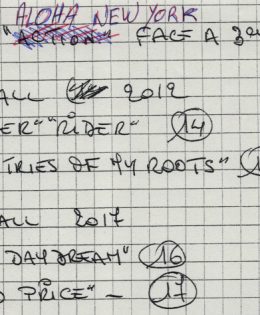 ALOHA NEW YORK
"ACTION" FACE A 3
ALL 2012
ER" "RIDER" 14
TRIES OF MY ROOTS" 1
ALL 2017
DAY DREAM" 16
PRICE" - 17